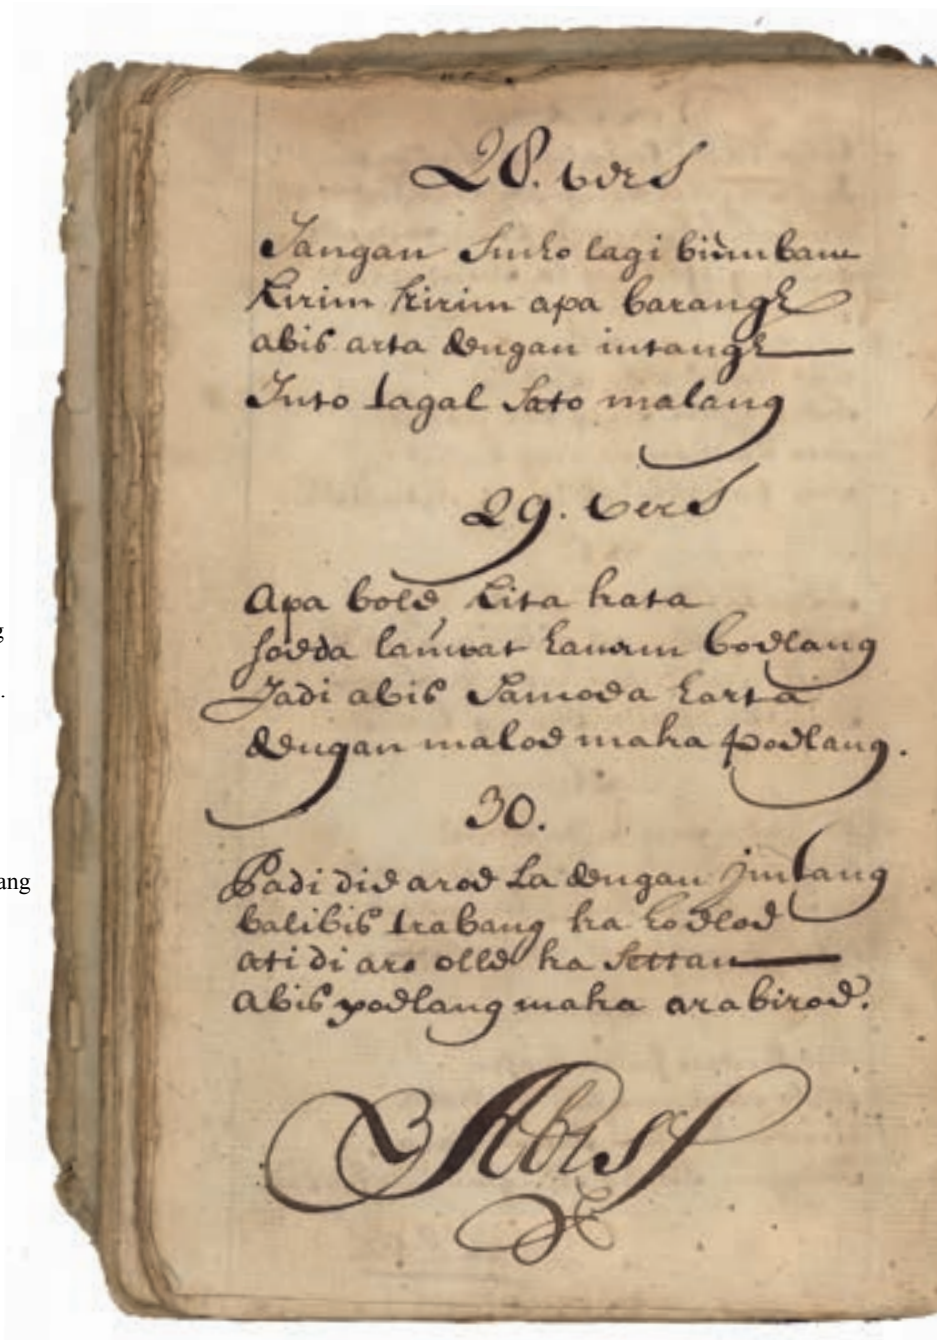 28. vers
Jangan lagi
kirim kirim apa barang
abis arta dengan intang
Jnto tagal Sato malang
29. vers
Apa bole kita kata
soeda boelang
Jadi abis Samoea karta
dengan maloe maka poelang.
30.
Padi die aroe La dengan jintang
balibis trabang ka koeloe
ati di aro olle ka settan
abis poelang maka arabiroe.
Abis
g
.
ang